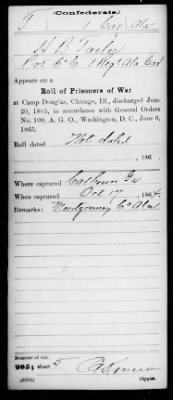 Confederate.
T 1 Cav Ala
H. R. Tailor
Pvt Co C 1 Reg't Ala Cav
Appears on a
Roll of Prisoners of War
at Camp Douglas, Chicago, Ill., discharged June
20, 1865, in accordance with General Orders
No. 109, A. G. O., Washington, D. C., June 6,
1865.
Roll dated Not dated
, 186 .
Where captured Calhoun Ga
When captured Oct 17, 1864.
Remarks: Montgomery Co Ala
Number of roll:
205; sheet 5
Copyist.